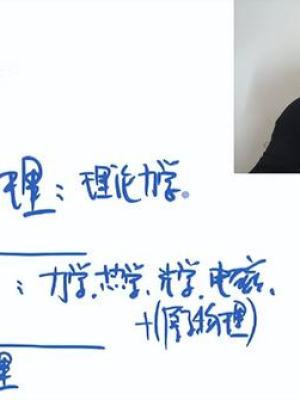 理：理论力学。
：力学、热学、光学、电磁、
+(原子物理)
理